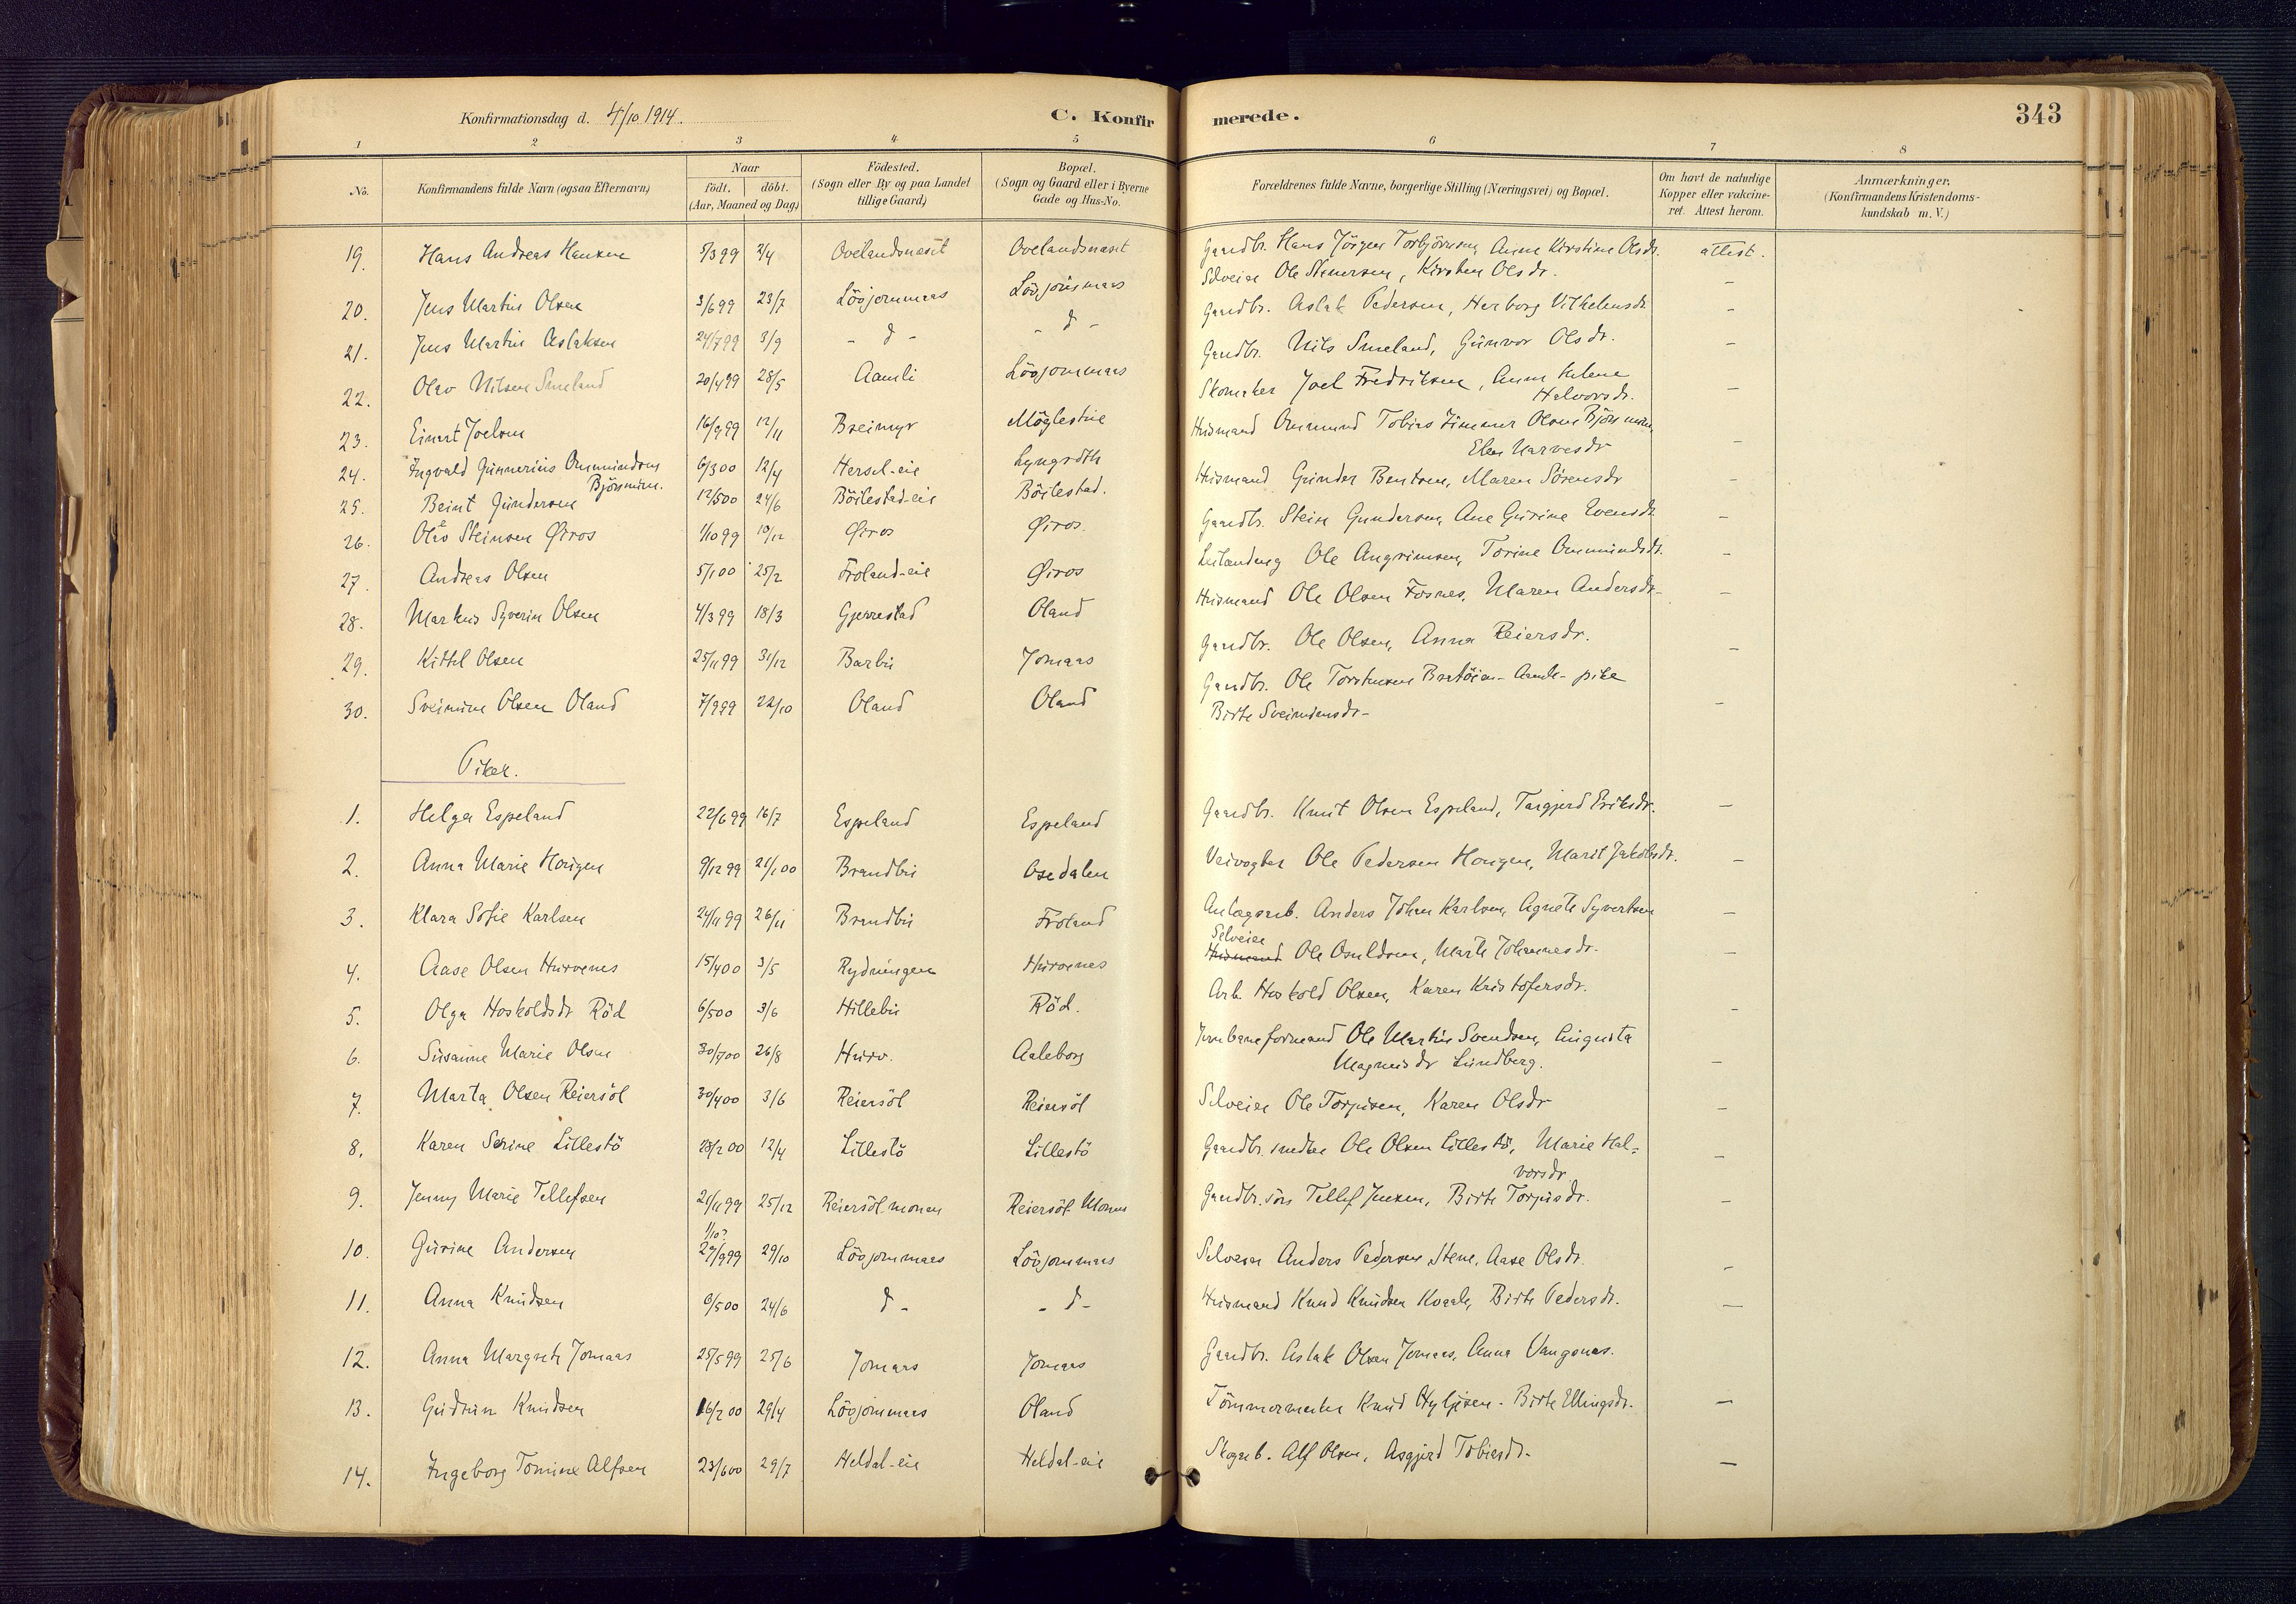 Konfirmationsdag d. 4/10 1914.
C. Konfirmerede.
343
1 2 3 4 5 6 7 8
No.
Konfirmandens fulde Navn (ogsaa Efternavn)
Naar
födt. döbt.
(Aar, Maaned og Dag)
Födested.
(Sogn eller By og paa Landet
tillige Gaard)
Bopæl.
(Sogn og Gaard eller i Byerne
Gade og Hus-No.
Forældrenes fulde Navne, borgerlige Stilling (Næringsvei) og Bopæl.
Om havt de naturlige
Kopper eller vakcine-
ret. Attest herom.
Anmærkninger.
(Konfirmandens Kristendoms-
kundskab m. V.)
19. Hans Andreas Hansen 5/3 99 2/4 Ovelandsneset Ovelandsneset Gaardbr. Hans Jörgen Torbjörnsen, Anne Kirstine Olsdr. attest.
20. Jens Martin Olsen 3/6 99 23/7 Lövjommaas Lövjommaas Selveier Ole , Kirsten Olsdr. -
21. Jens Martin Aslaksen 24/7 99 3/9 - d - - d - Gaardbr. Aslak Pedersen, Herborg Vilhelmsdr. -
22. Olav Nilsen Smeland 20/4 99 28/5 Aamli Lövjommaas Gaardbr. Nils Smeland, Gunvor Olsdr. -
23. Einart Joelsen 16/9 99 12/11 Breimyr Möglestue Skomaker Joel Fredriksen, Anne Helene
Halvorsdr. -
24. Ingvald Gunnerius Ommundsen
Björnmin. 6/3 00 12/4 Hersel-eie Lyngroth Husmand Ommund Tobias Olsen
Elen -
25. Beint Gundersen 12/5 00 24/6 Böilestad-eie Böilestad. Husmand Gunder Bentsen, Maren Sörensdr -
26. Olav Steinsen Øiros 1/10 99 10/12 Øiros Øiros. Gaardbr. Stein Gundersen, Ane Gurine Evensdr. -
27. Andreas Olsen 5/1 00 25/2 Froland-eie Øiros Ole Angrimsen, Torine Ommundsdr. -
28. Markus Syverin Olsen 4/3 99 18/3 Gjerrestad Oland Husmand Ole Olsen Fosnes, Maren Andersdr- -
29. Kittel Olsen 25/11 99 31/12 Barbu Jomaas Gaardbr. Ole Olsen, Anna Reiersdr. -
30. Sveinung Olsen Oland 7/9 99 22/10 Oland Oland Gaardbr. Ole Torstensen pike
Birte Sveinungsdr- -
Piker.
1. Helga Espeland 22/6 99 16/7 Espeland Espeland Gaardbr. Knut Olsen Espeland, Targjerd Eriksdr. -
2. Anna Marie Hougen 9/12 99 21/1 00 Brandbu Osedalen Veivogter Ole Pedersen Hougen, Marit Jakobsdr. -
3. Klara Sofie Karlsen 24/11 99 26/11 Brandbu Froland Anlægsarb. Anders Johan Karlsen, Agnete Syvertsen -
4. Aase Olsen Hurvenes 15/4 00 3/5 Rydningen Hurvenes Selveier
Husmand Ole Osuldsen, Marte Johannesdr. -
5. Olga Hoskoldsdr Röd 6/5 00 3/6 Hillebu Röd. Arb. Hoskold Olsen, Karen Kristofersdr. -
6. Susanne Marie Olsen 30/7 00 26/8 Hurv. Aaleborg Jernbaneformand Ole Martin Svendsen, Augusta
Magnusdr Lundberg. -
7. Marta Olsen Reiersöl 30/4 00 3/6 Reiersöl Reiersöl Selveier Ole Torjusen, Karen Olsdr -
8. Karen Serine Lillestö 28/2 00 12/4 Lillestö Lillestö Gaardbr. smeder Ole Olsen Lillestö, Marie Hal-
vorsdr -
9. Jenny Marie Tellefsen 21/11 99 25/12 Reiersöl monen Reiersöl Monen Gaardbr. sön Tellef Jensen, Birte Torjusdr. -
10. Gurine Andersen 1/10?
29/9 99 29/10 Lövjommaas Lövjommaas Selveier Anders Pedersen Stene, Aase Olsdr. -
11. Anna Knudsen 6/5 00 24/6 d - - d - Husmand Knud Knudsen Kvaale, Birte Pedersdr. -
12. Anna Margrete Jomaas 25/5 99 25/6 Jomaas Jomaas Gaardbr. Aslak Olsen Jomaas, Anna Vangsnes.
13. Gudrun Knudsen 16/2 00 29/4 Lövjommaas Oland Tömmermand Knud - Birte Ellingsdr. -
14. Ingeborg Tomine Alfsen 23/6 00 29/7 Heldal-eie Heldal-eie Skogarb. Alf Olsen, Asgjerd Tobiasdr- -